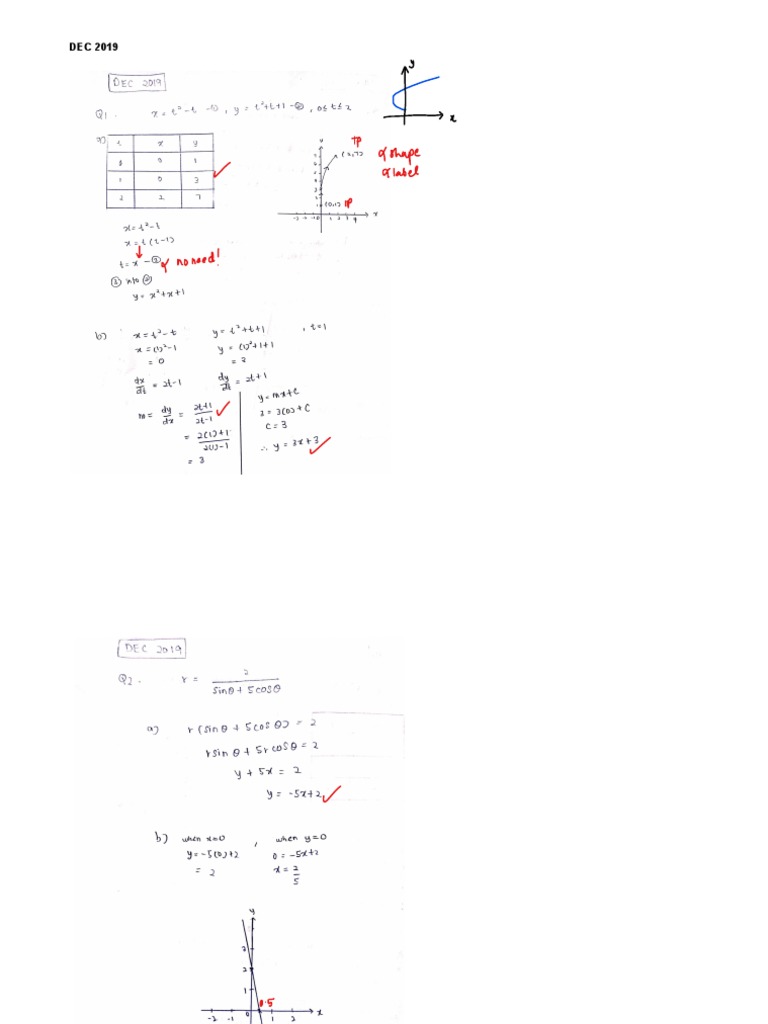 DEC 2019
DEC 2019
Q1. x = t²-t -①, y = t²+t+1 -②, 0≤t≤2
a)
t x y
0 0 1
1 0 3
2 2 7
y
7
6
5
4
3
2
1
TP
(2,7)
(0,1) IP
-3 -2 -1 0 1 2 3 4
x
y
x
shape
label
x = t²-t
x = t(t-1)
t = x -③ no need!
③ into ②
y = x²+x+1
b) x = t²-t y = t²+t+1 , t=1
x = (1)²-1 y = (1)²+1+1
= 0 = 3
dx/dt = 2t-1 dy/dt = 2t+1
m = dy/dx = 2t+1/2t-1
= 2(1)+1/2(1)-1
= 3
y = mx+c
3 = 3(0)+c
c = 3
∴ y = 3x+3
DEC 2019
Q2. r = 2/sinθ + 5cosθ
a) r(sinθ + 5cosθ) = 2
rsinθ + 5rcosθ = 2
y + 5x = 2
y = -5x+2
b) when x=0 , when y=0
y = -5(0)+2 0 = -5x+2
= 2 x = 2/5
y
3
2
1
0.5
x
-2 -1 0 1 2